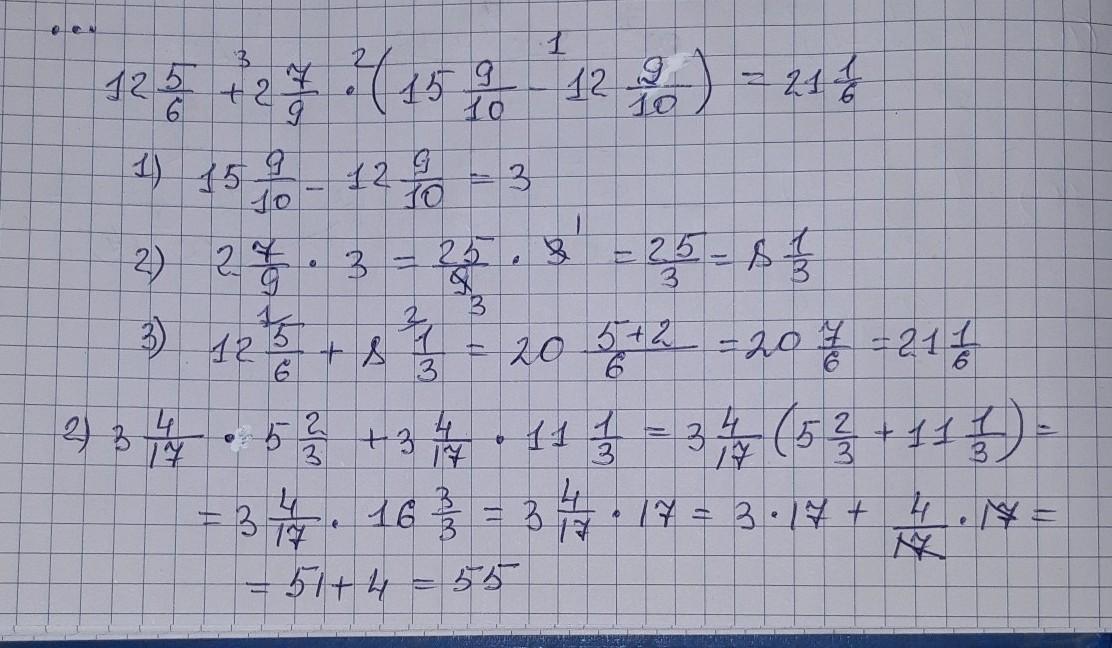 ...
12 5/6 +³ 2 7/9 ·² (15 9/10 -¹ 12 9/10) = 21 1/6
1) 15 9/10 - 12 9/10 = 3
2) 2 7/9 · 3 = 25/9₃ · 3¹ = 25/3 = 8 1/3
3) 12 ¹⁄5/6 + 8 ²⁄1/3 = 20 5+2/6 = 20 7/6 = 21 1/6
2) 3 4/17 · 5 2/3 + 3 4/17 · 11 1/3 = 3 4/17 (5 2/3 + 11 1/3) =
= 3 4/17 · 16 3/3 = 3 4/17 · 17 = 3 · 17 + 4/17 · 17 =
= 51 + 4 = 55